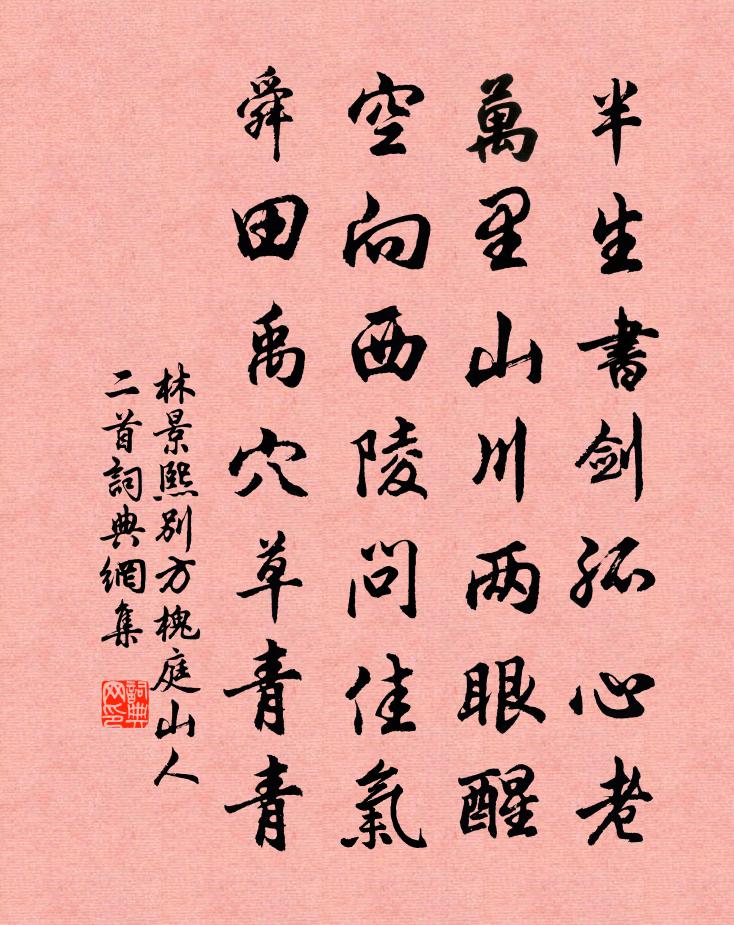 半生書劍孤心老
萬里山川两眼醒
空向西陵問佳氣
舜田禹穴草青青
林景熙別方槐庭山人
二首詞典網集
詞典网印